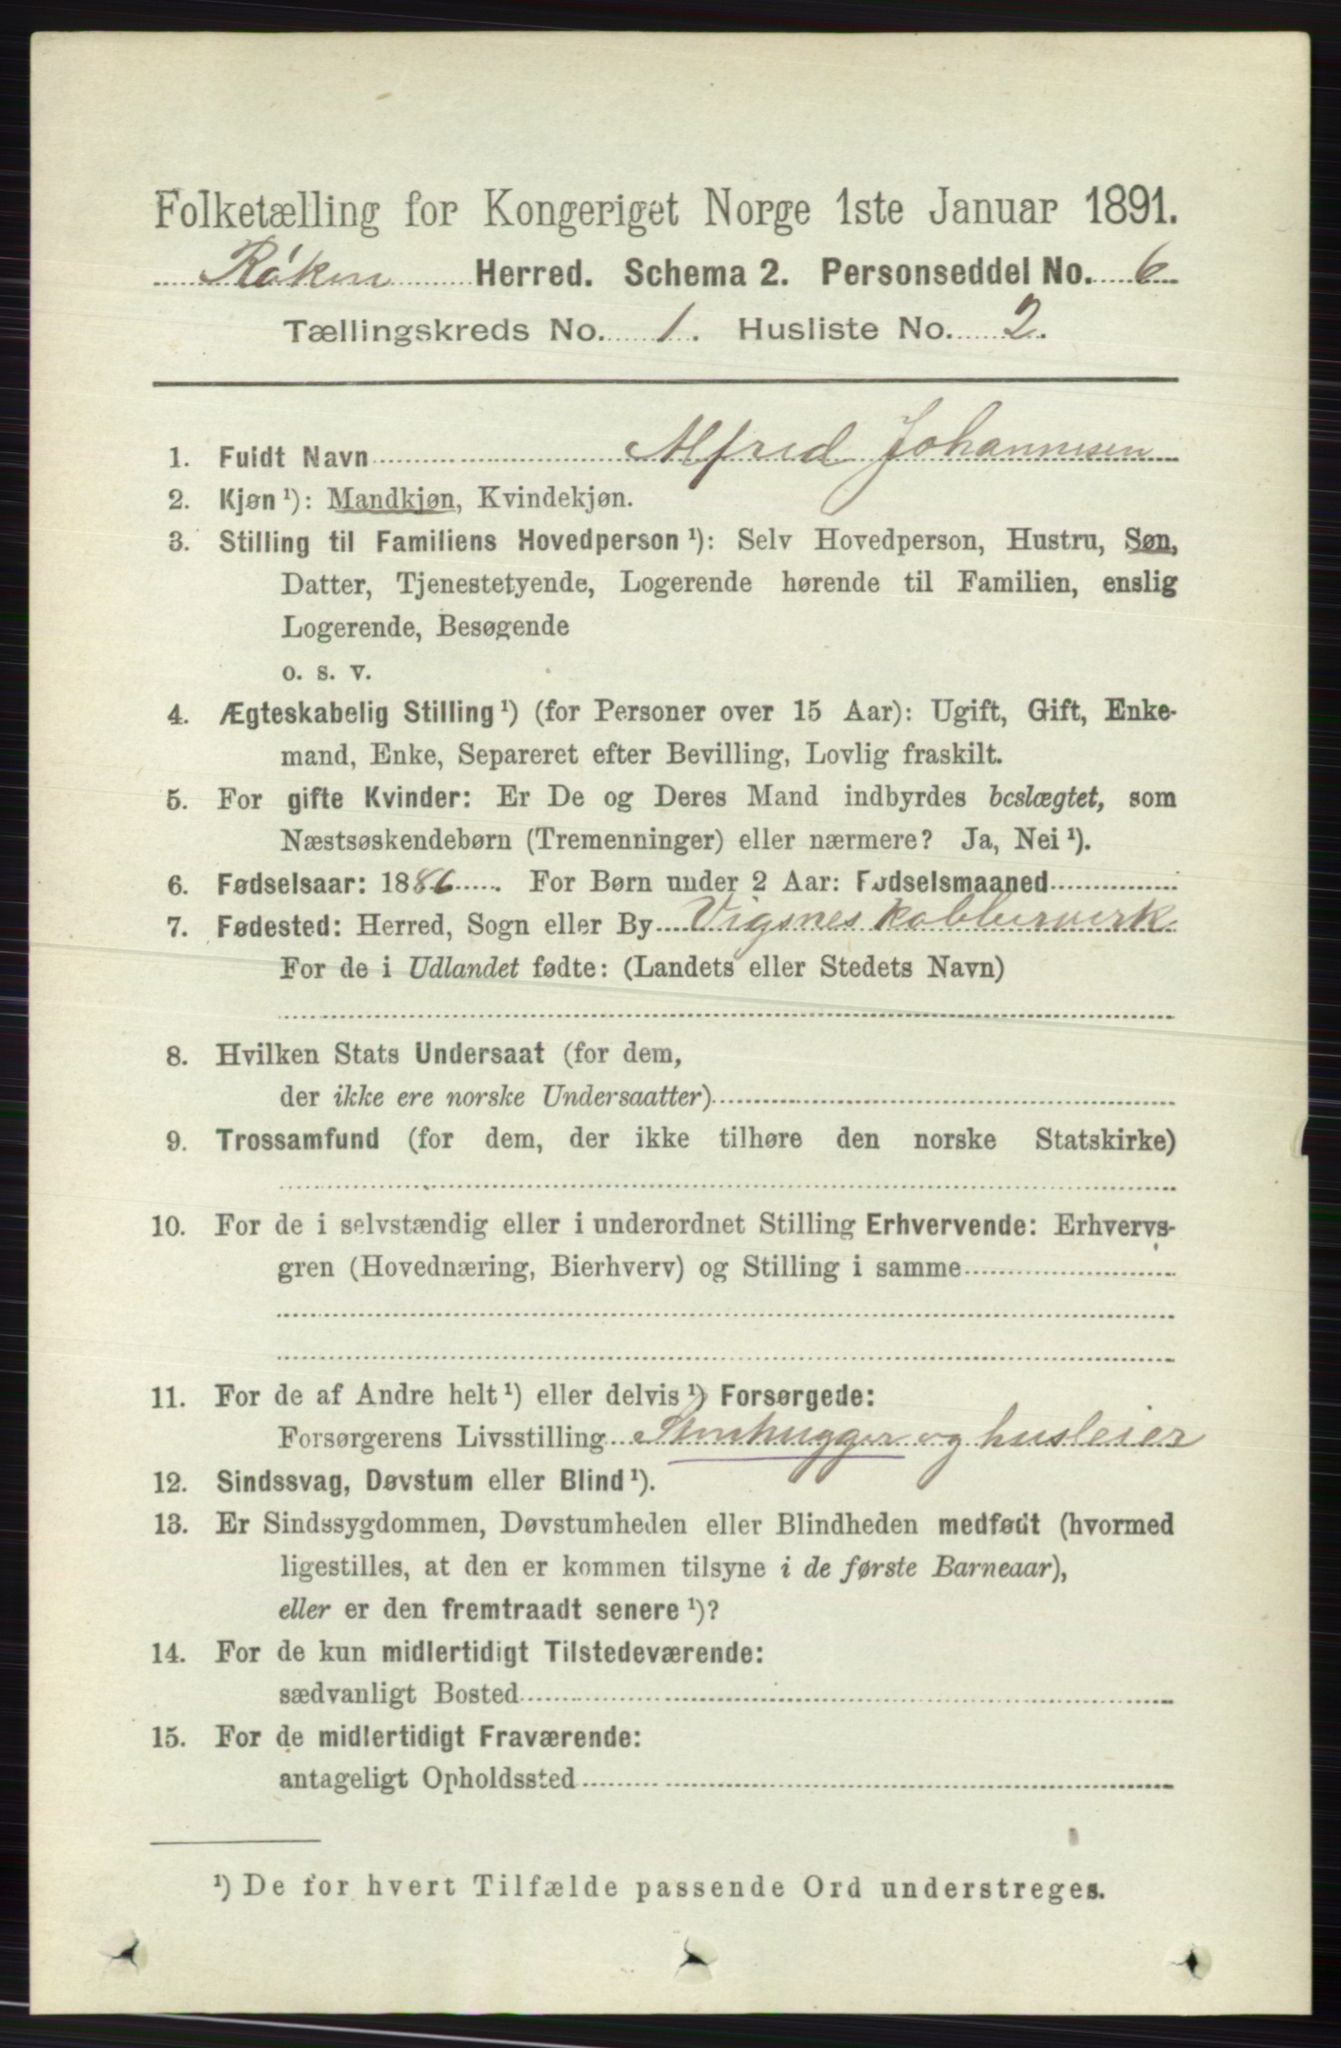 Folketælling for Kongeriget Norge 1ste Januar 1891.
Røken Herred. Schema 2. Personseddel No. 6
Tællingskreds No. 1. Husliste No. 2.
1. Fuldt Navn Alfred Johannesen
2. Kjøn¹): Mandkjøn, Kvindekjøn.
3. Stilling til Familiens Hovedperson¹): Selv Hovedperson, Hustru, Søn,
Datter, Tjenestetyende, Logerende hørende til Familien, enslig
Logerende, Besøgende
o. s. v.
4. Ægteskabelig Stilling¹) (for Personer over 15 Aar): Ugift, Gift, Enke-
mand, Enke, Separeret efter Bevilling, Lovlig fraskilt.
5. For gifte Kvinder: Er De og Deres Mand indbyrdes beslægtet, som
Næstsøskendebørn (Tremenninger) eller nærmere? Ja, Nei¹).
6. Fødselsaar: 1886. For Børn under 2 Aar: Fødselsmaaned
7. Fødested: Herred, Sogn eller By Vigsnes Kobberverk
For de i Udlandet fødte: (Landets eller Stedets Navn)
8. Hvilken Stats Undersaat (for dem,
der ikke ere norske Undersaatter)
9. Trossamfund (for dem, der ikke tilhøre den norske Statskirke)
10. For de i selvstændig eller i underordnet Stilling Erhvervende: Erhvervs-
gren (Hovednæring, Bierhverv) og Stilling i samme
11. For de af Andre helt¹) eller delvis¹) Forsørgede:
Forsørgerens Livsstilling Stenhugger og husleier
12. Sindssvag, Døvstum eller Blind¹).
13. Er Sindssygdommen, Døvstumheden eller Blindheden medfødt (hvormed
ligestilles, at den er kommen tilsyne i de første Barneaar),
eller er den fremtraadt senere¹)?
14. For de kun midlertidigt Tilstedeværende:
sædvanligt Bosted
15. For de midlertidigt Fraværende:
antageligt Opholdssted
¹) De for hvert Tilfælde passende Ord understreges.